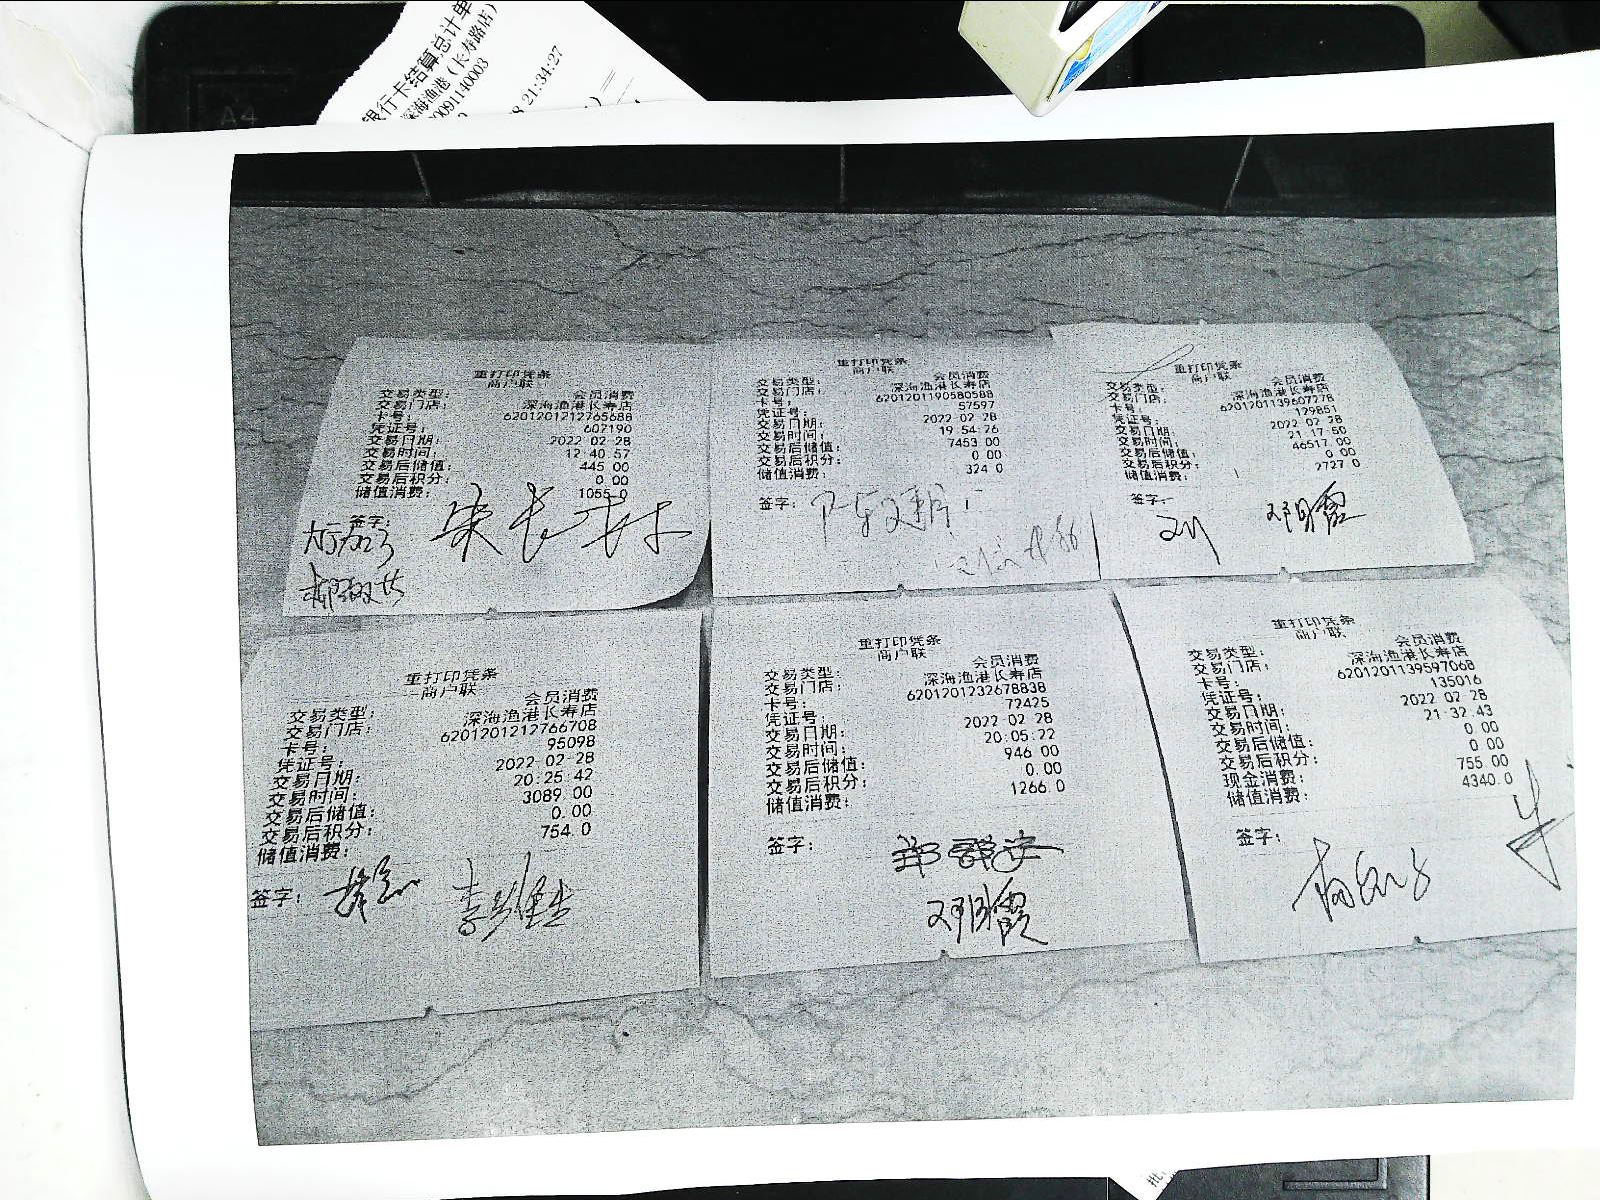 银行卡结算总计单
深海渔港（长寿路店）
0091140003
8 21:34:27
A4
重打印凭条
商户联
交易类型： 会员消费
交易门店： 深海渔港长寿店
卡号： 6201201212765688
凭证号： 607190
交易日期： 2022 02 28
交易时间： 12 40 57
交易后储值： 445 00
交易后积分： 0 00
储值消费： 1055 0
签字：
重打印凭条
商户联
交易类型： 会员消费
交易门店： 深海渔港长寿店
卡号： 6201201190580588
凭证号： 57597
交易日期： 2022 02 28
交易时间： 19 54 26
交易后储值： 7453 00
交易后积分： 0 00
储值消费： 324 0
签字：
重打印凭条
商户联
交易类型： 会员消费
交易门店： 深海渔港长寿店
卡号： 6201201139607278
凭证号： 129851
交易日期： 2022 02 28
交易时间： 21 17 50
交易后储值： 46517 00
交易后积分： 0 00
储值消费： 2727 0
签字：
邓阳霞
重打印凭条
商户联
交易类型： 会员消费
交易门店： 深海渔港长寿店
卡号： 6201201212766708
凭证号： 95098
交易日期： 2022 02 28
交易时间： 20 25 42
交易后储值： 3089 00
交易后积分： 0.00
储值消费： 754 0
签字：
重打印凭条
商户联
交易类型： 会员消费
交易门店： 深海渔港长寿店
卡号： 6201201232678838
凭证号： 72425
交易日期： 2022 02 28
交易时间： 20:05:22
交易后储值： 946 00
交易后积分： 0.00
储值消费： 1266.0
签字：
重打印凭条
商户联
交易类型： 会员消费
交易门店： 深海渔港长寿店
卡号： 6201201139597068
凭证号： 135016
交易日期： 2022 02 28
交易时间： 21 32 43
交易后储值： 0 00
交易后积分： 0 00
现金消费： 755 00
储值消费： 4340.0
签字：